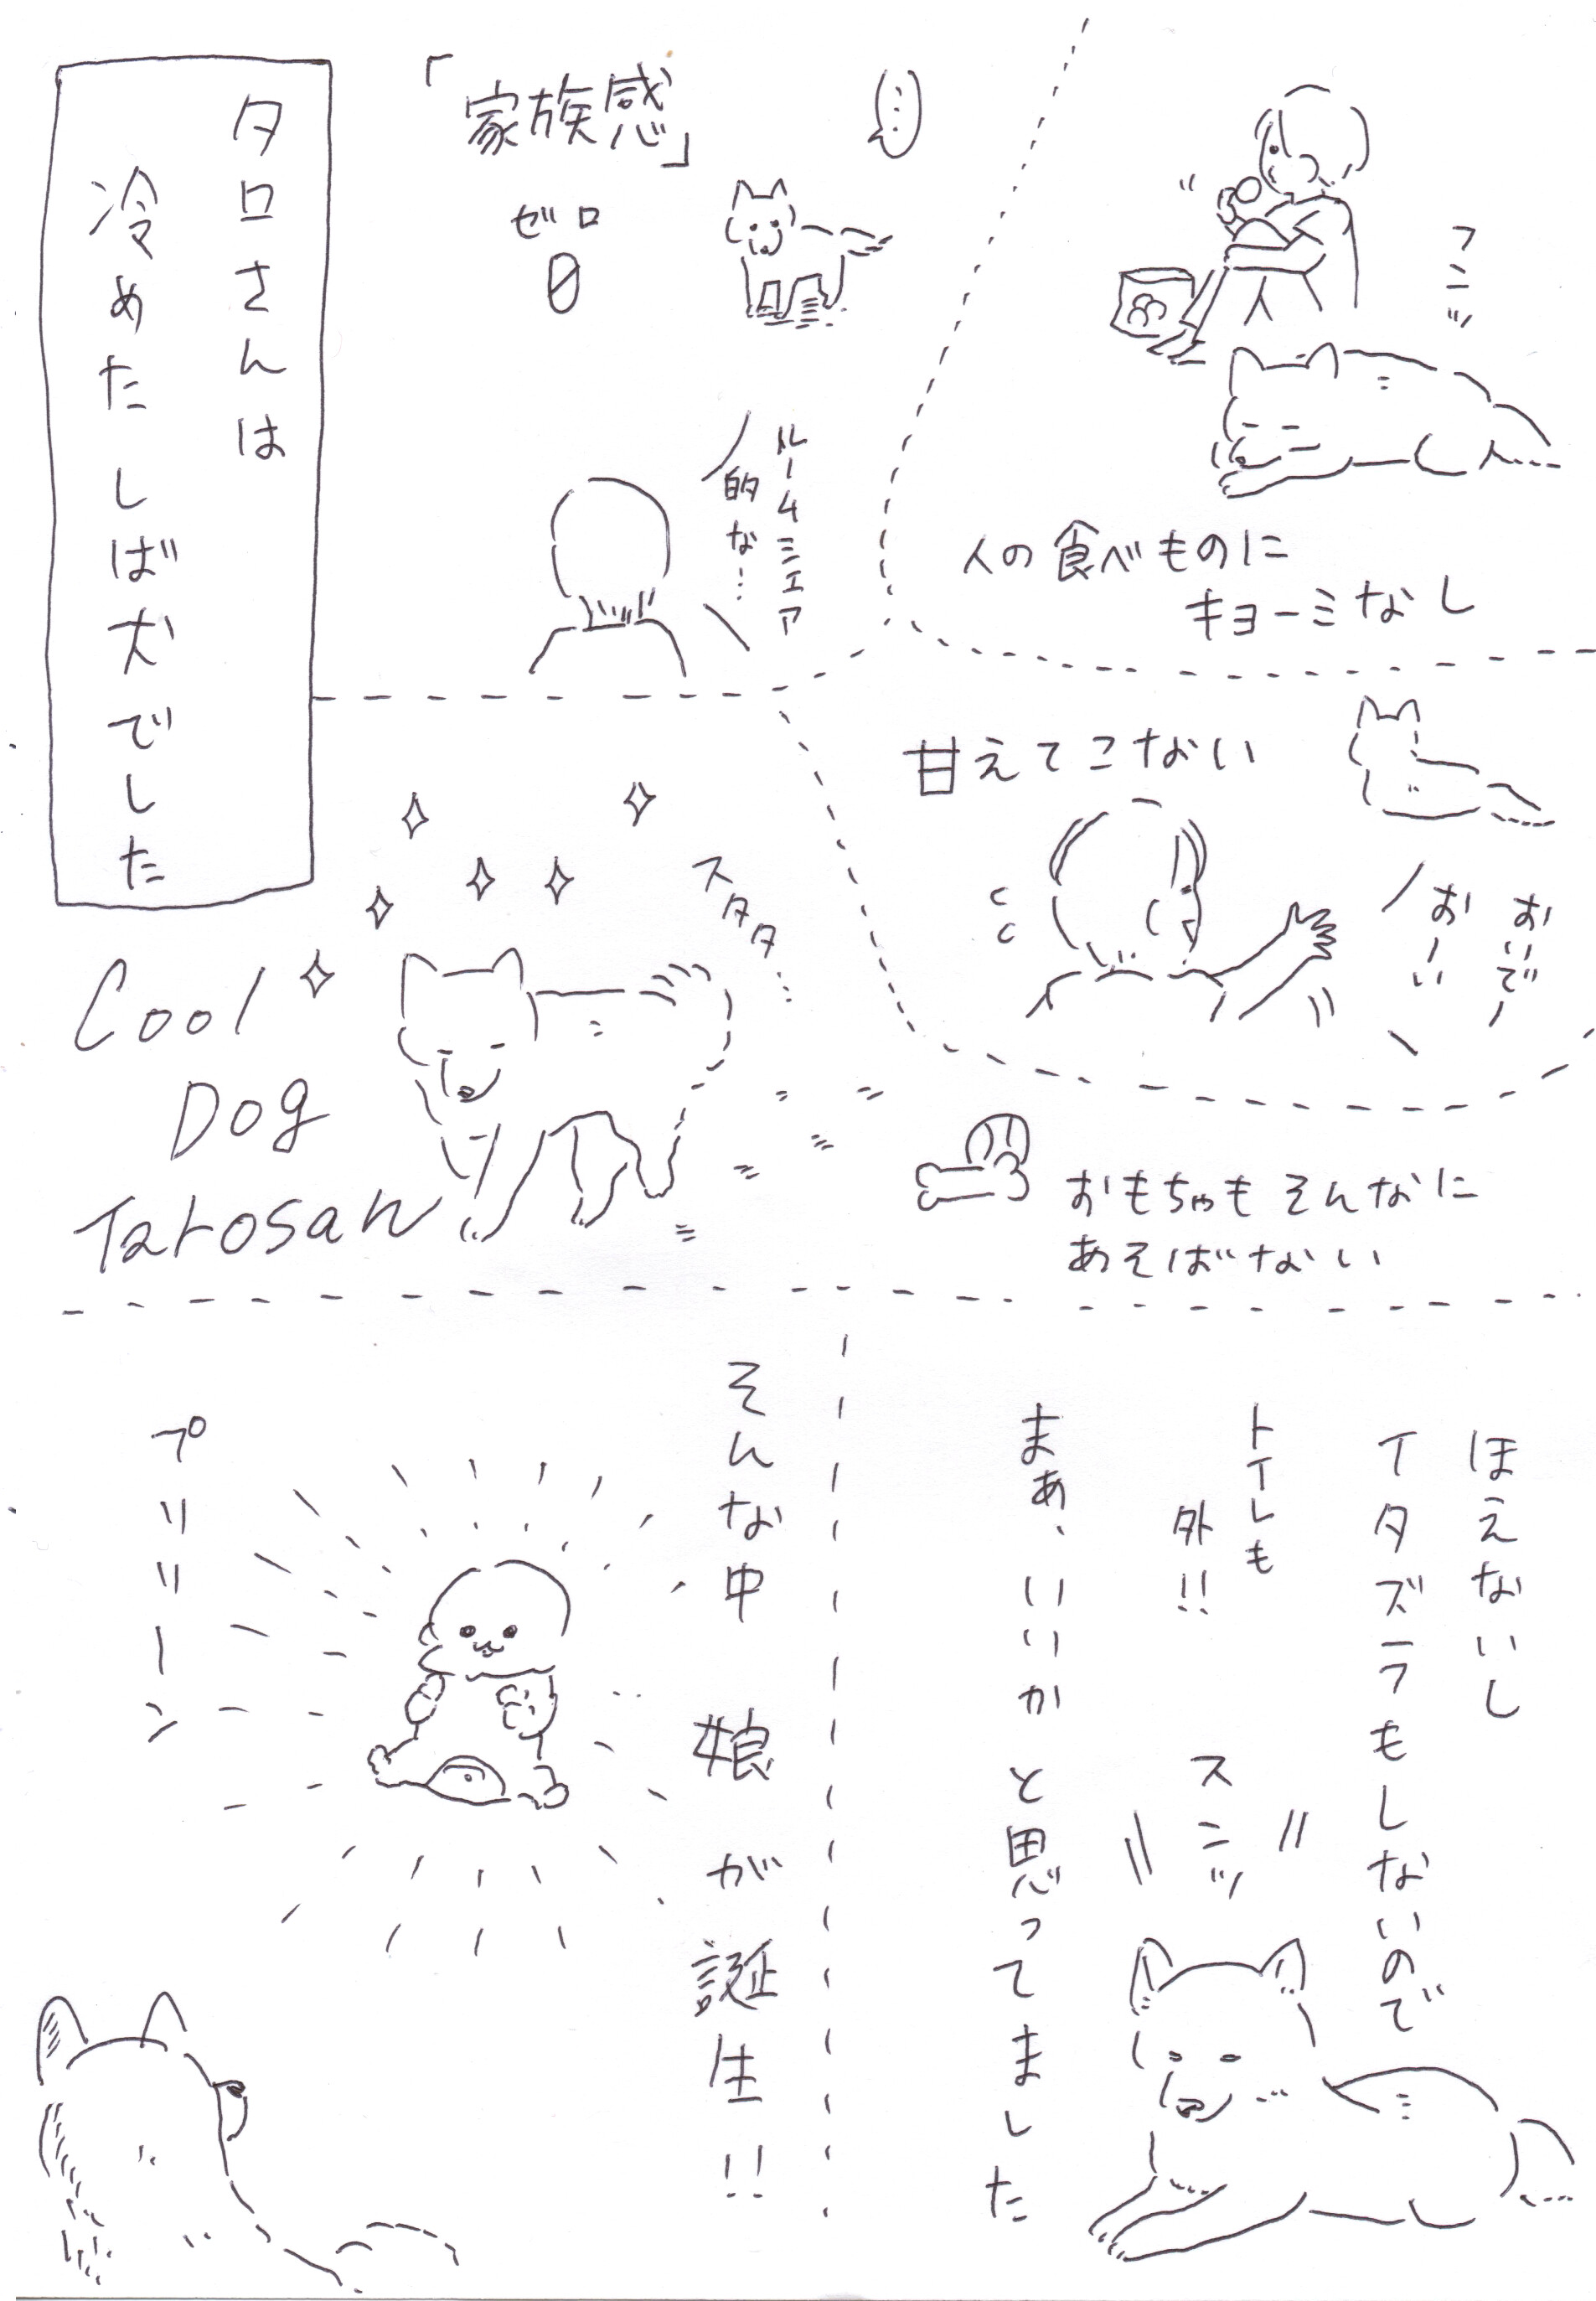 フニッ
人の食べものに
キョーミなし
「家族感」
ゼロ
0
ルームシェア
的な…
タロさんは
冷めたしば犬でした
甘えてこない
おいでー
おーい
おもちゃもそんなに
あそばない
スタタ…
Cool
Dog
Tarosan
ほえないし
イタズラもしないので
トイレも
外!!
スンッ
まあ、いいかと思ってました
そんな中 娘が誕生!!
プリリーン